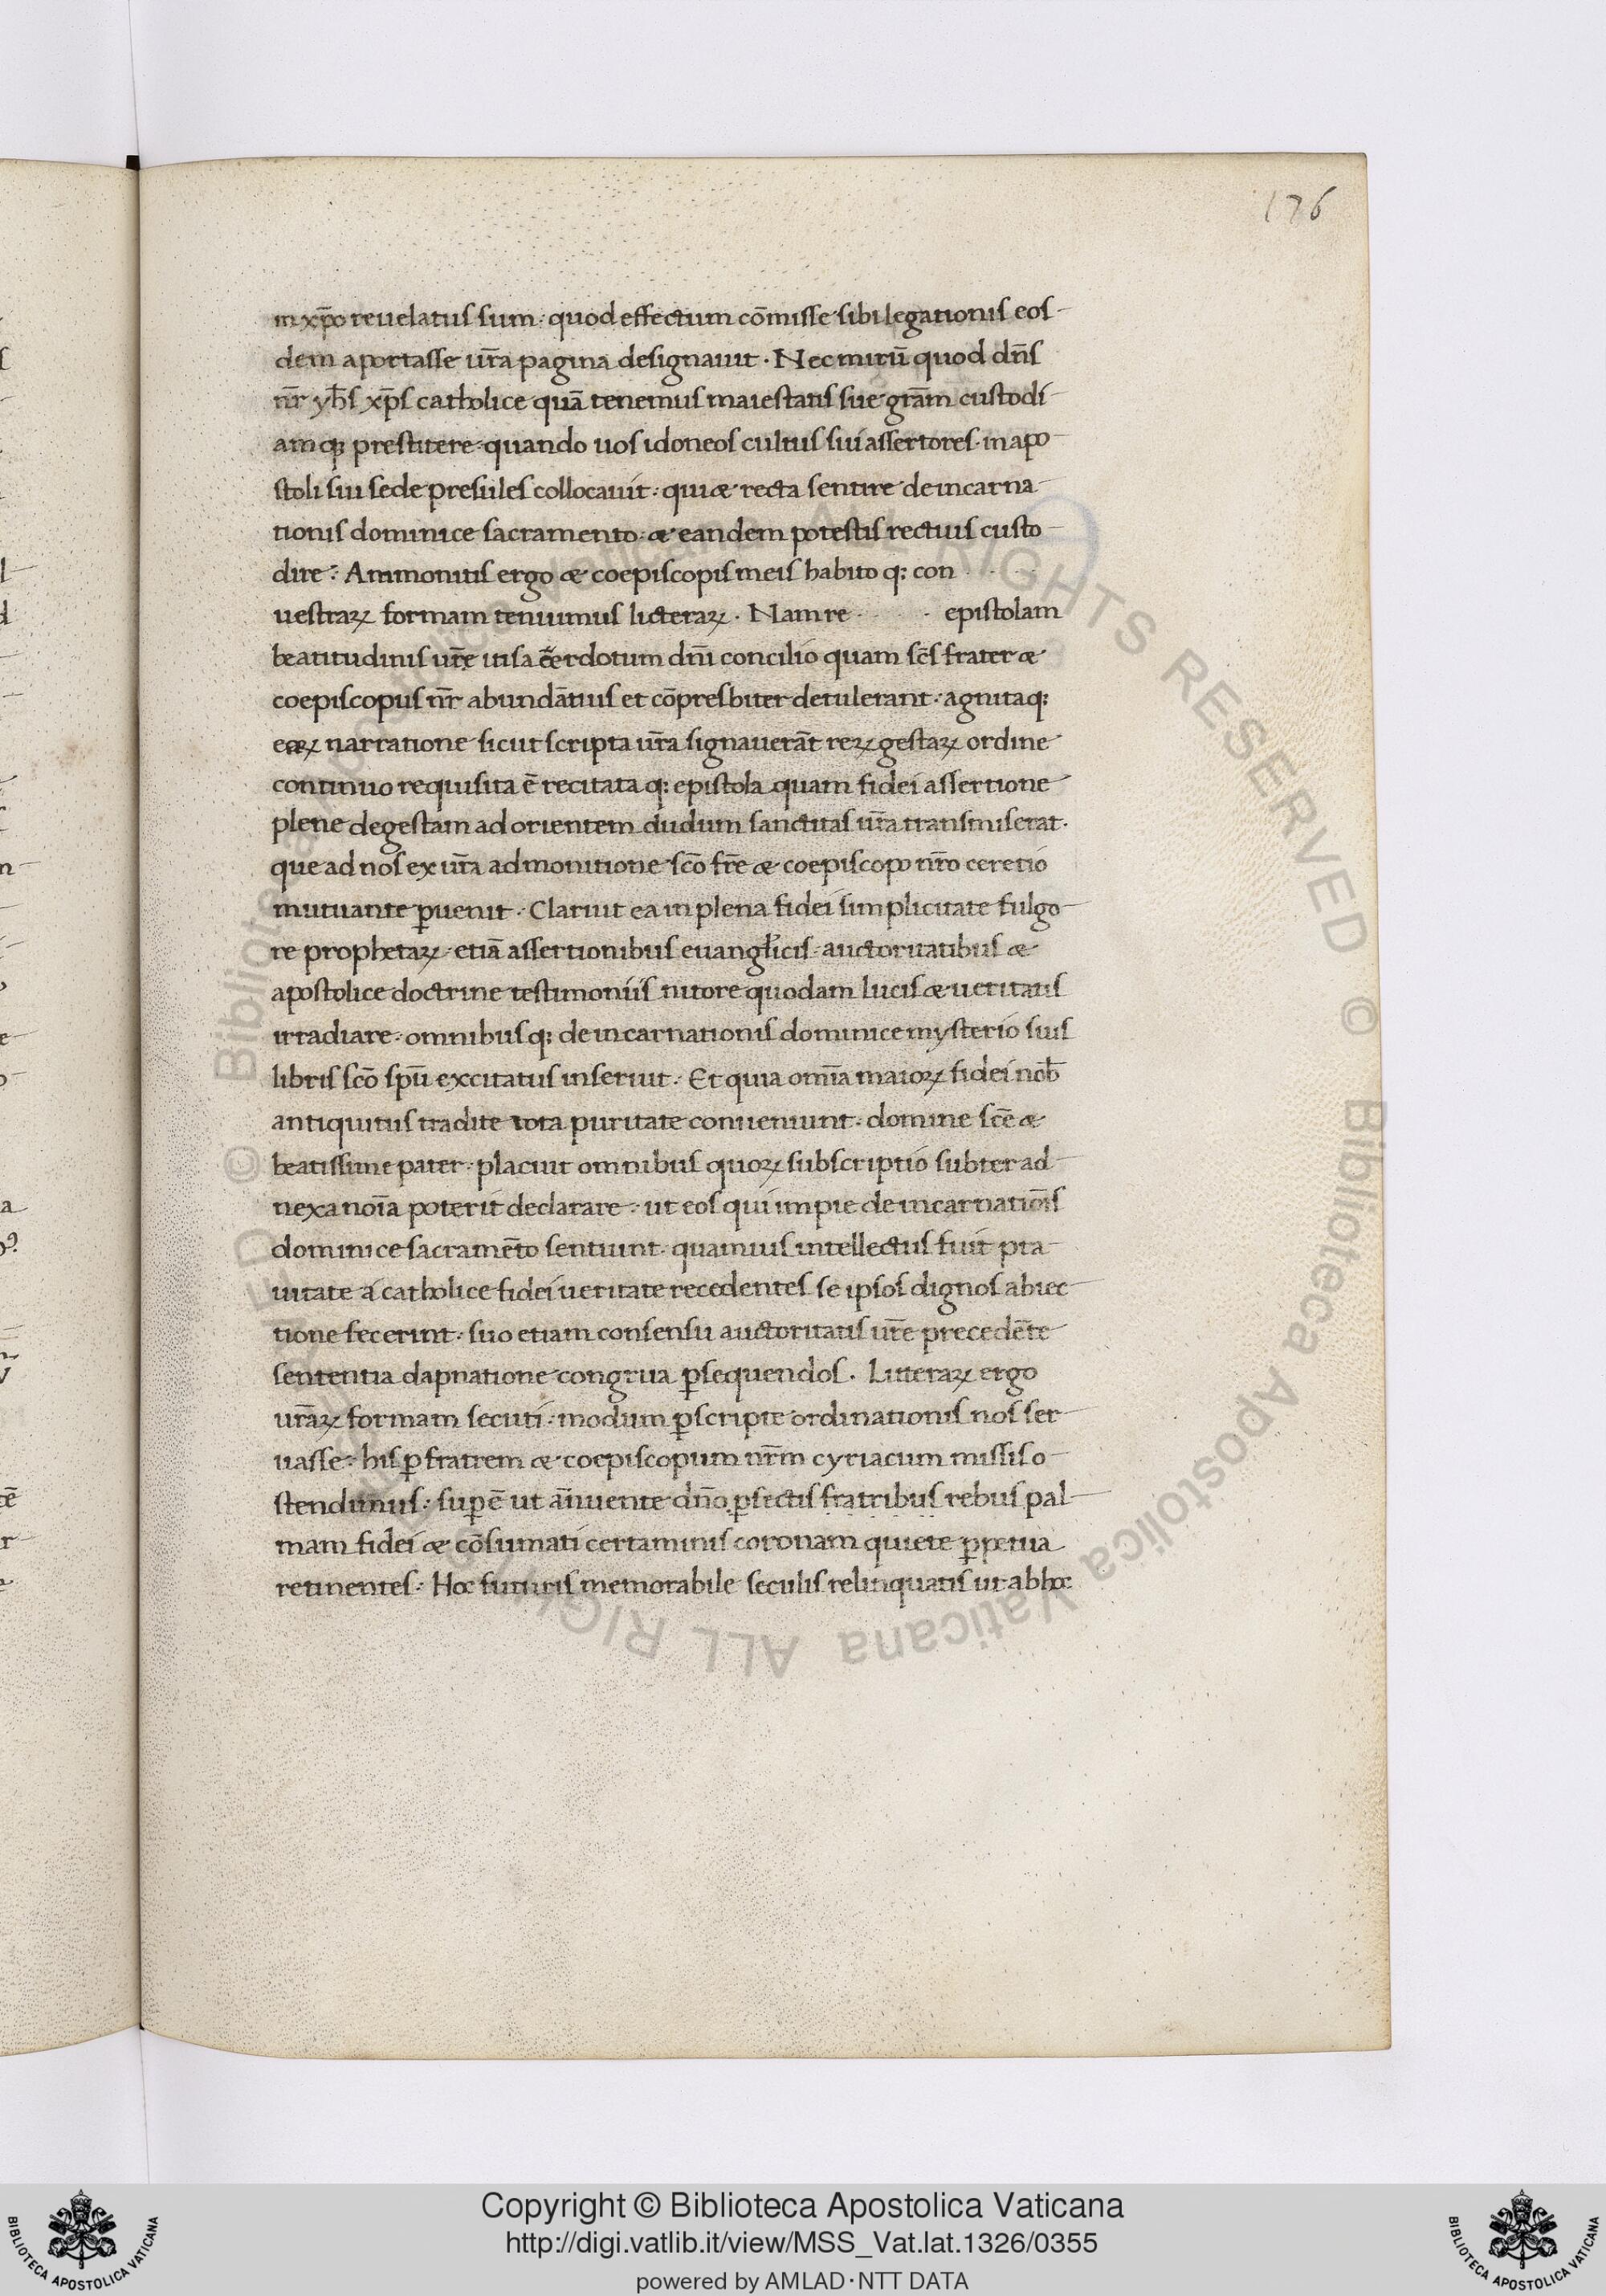 176
in xp̄o reuelatus sum· quod effectum cōmisse sibi legationis eos-
dem aportasse ur̄a pagina designauit· Nec mirū quod dn̄s
nr̄ yh̄s xp̄s catholice quā tenemus maiestatis sue gr̄am custodi-
amq; prestitere· quando uos idoneos cultus sui assertores· in apo-
stoli sui sede presules collocauit· qui & recta sentire de incarna-
tionis dominice sacramento· & eandem potestis rectius custo-
dire· Ammonitis ergo & coepiscopis meis habito q; con · · · ·
uestraꝝ formam tenuimus licteraꝝ· Nam re · · · · epistolam
beatitudinis ur̄e iti sacerdotum dn̄i concilio quam sc̄s frater &
coepiscopus nr̄ abundātius et cōpresbiter detulerant· agnitaq;
eoꝝ narratione sicut scripta ur̄a signauerāt reꝝ gestaꝝ ordine
continuo requisita ē recitata q; epistola quam fidei assertione
plene degestam ad orientem dudum sanctitas ur̄a transmiserat·
que ad nos ex ur̄a admonitione sc̄o fr̄e & coepiscopo nr̄o ceretio
mutuante ꝑuenit· Claruit ea in plena fidei simplicitate fulgo-
re prophetaꝝ· etiā assertionibus euangl̄icis· auctoritatibus &
apostolice doctrine testimoniis nitore quodam lucis & ueritatis
irradiare· omnibusq; de incarnationis dominice mysterio suis
libris sc̄o sp̄u excitatus inseruit· Et quia om̄ia maioꝝ fidei nob̄
antiquitus tradite tota puritate conueniunt· domine sc̄e &
beatissime pater· placuit omnibus quoꝝ subscriptio subter ad-
nexa noīa poterit declarare· ut eos qui impie de incarnatiōis
dominice sacramēto sentiunt· quamuis intellectus fuit pra-
uitate a catholice fidei ueritate recedentes se ipsos dignos abiec-
tione fecerint· suo etiam consensu auctoritatis ur̄e precedēte
sententia dapnatione congrua ꝑsequendos· Litteraꝝ ergo
ur̄aꝝ formam secuti· modum ꝑscripte ordinationis nos ser-
uasse· his ꝑ fratrem & coepiscopum nr̄m cyriacum missis o-
stendimus· suꝑ ē ut ānuente dn̄o ꝑfectis fratribus rebus pal-
mam fidei & cōsumati certaminis coronam quiete ꝑpetua
retinentes· Hoc futuris memorabile seculis relinquatis ut ab hoc
© Biblioteca Apostolica Vaticana ALL RIGHTS RESERVED © Biblioteca Apostolica Vaticana ALL RIGHTS RESERVED
BIBLIOTECA APOSTOLICA VATICANA
Copyright © Biblioteca Apostolica Vaticana
http://digi.vatlib.it/view/MSS_Vat.lat.1326/0355
powered by AMLAD·NTT DATA
BIBLIOTECA APOSTOLICA VATICANA